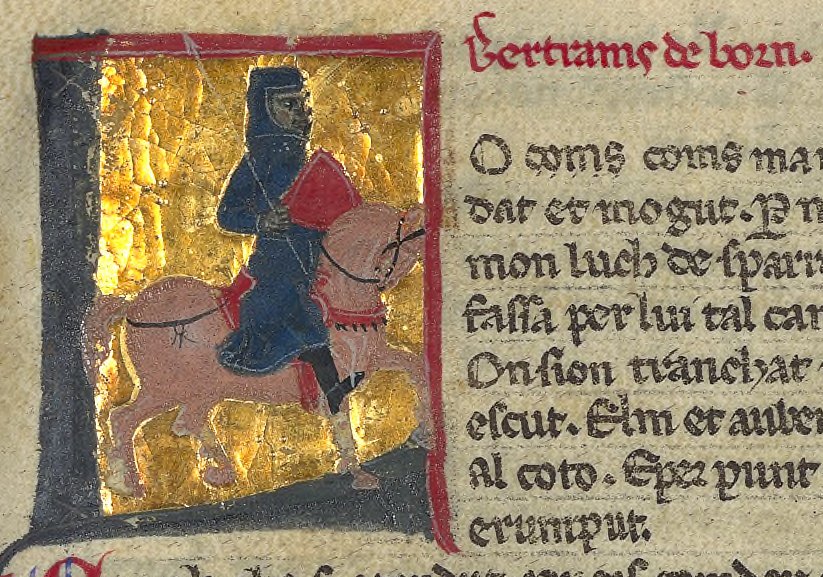 Bertrams de born.
O coms coms man
dat et mogut. P n
mon luch de sparr
fassa per lui tal can
On sion tranchat
escut. Elm et auber
Al coto. E per punt
erumput.